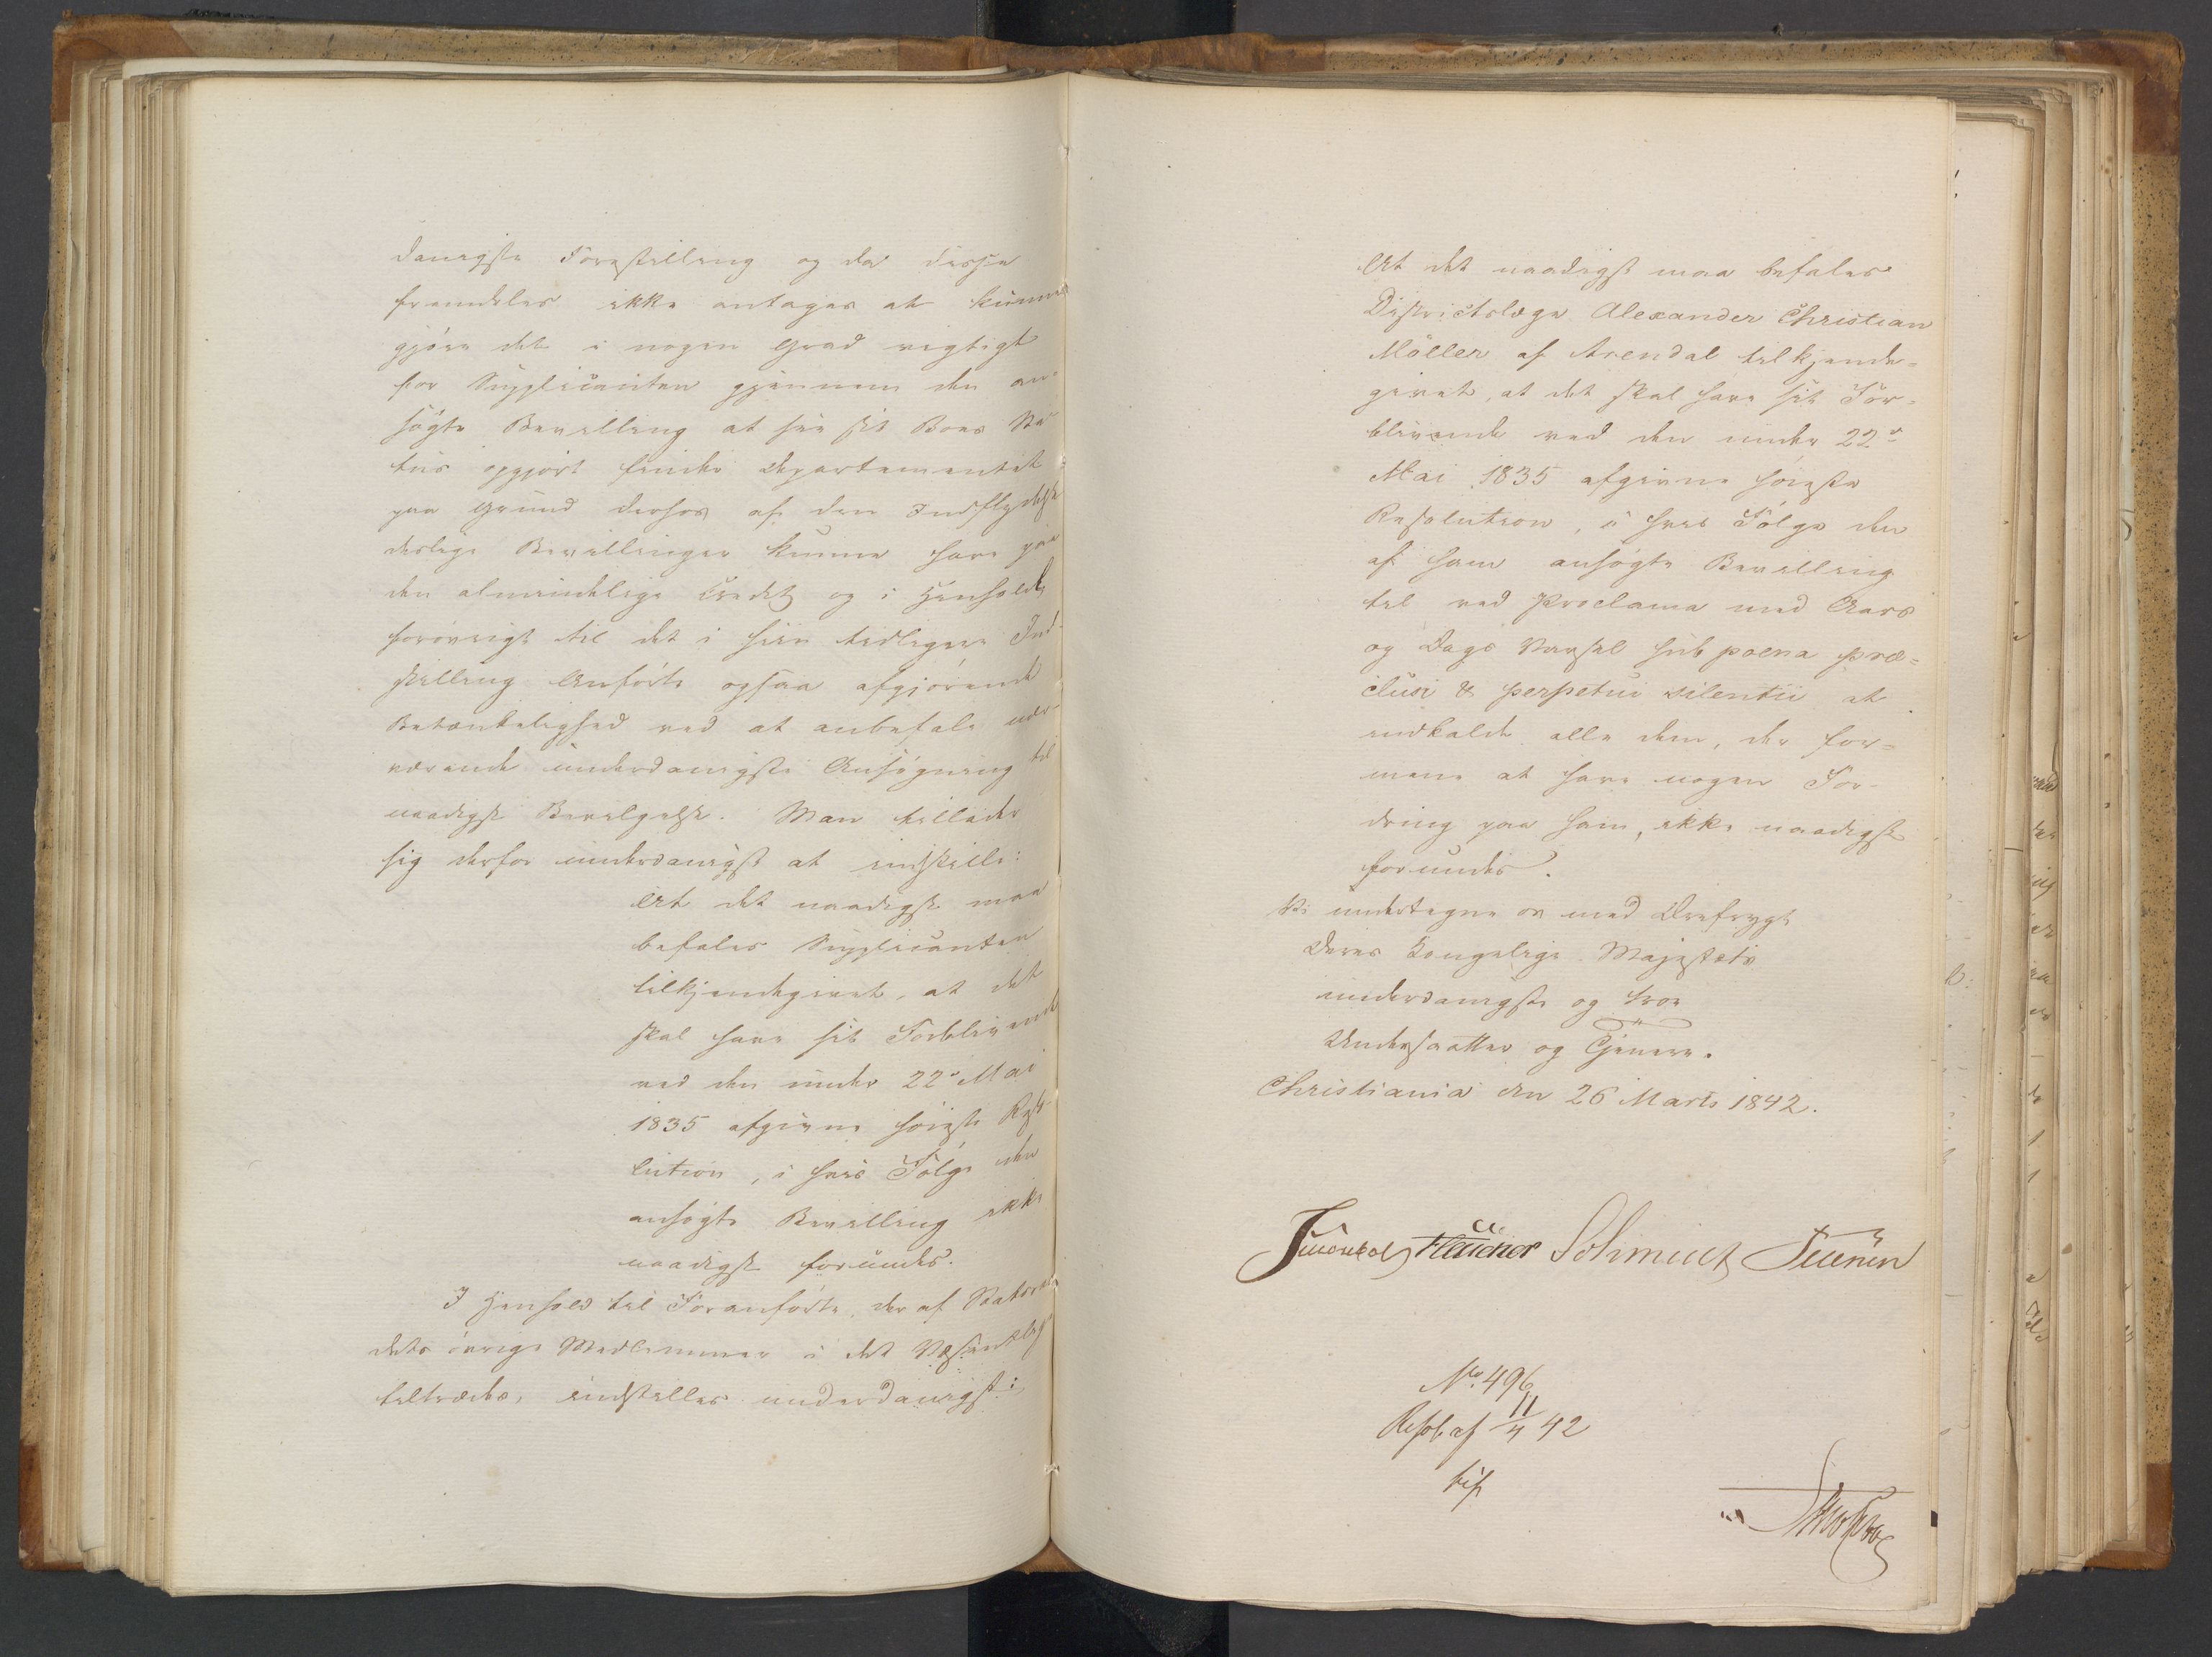 danigste Forestilling og da disse
fremdeles ikke antages at kunne
gjöre det i nogen Grad vigtigt
for Supplicanten gjennem den an-
søgte Bevilling at see sit Boes Sta-
tus opgjort finder Departementet
paa Grund derhos af den Indflydelse
deslige Bevillinger kunne have paa
den almindelige Credit og i Henhold
forøvrigt til det i sin tidligere Ind-
stilling Anførte ogsaa afgjørende
Betænkelighed ved at anbefale nær-
værende underdanigste Ansøgning til
naadigst Bevilgelse. Man tillader
sig derfor underdanigst at indstille:
At det naadigst maa
befales Supplicanten
tilkjendegivet, at det
skal have sit Forblivende
ved den under 22de Mai
1835 afgivne høieste Reso-
lution, i hvis Følge den
ansøgte Bevilling ikke
naadigst forundes.
I Henhold til Foranførte, der af Statsraa-
dets øvrige Medlemmer i det Væsentlige
tiltrædes, indstilles underdanigst:
At det naadigst maa befales
Districtslæge Alexander Christian
Möller af Arendal tilkjende-
givet, at det skal have sit For-
blivende ved den under 22de
Mai 1835 afgivne høieste
Resolution, i hvis Følge den
af ham ansøgte Bevilling
til ved Proclama med Aars
og Dags Varsel sub poena præ-
clusi & perpetui silentii at
indkalde alle dem, der for-
mene at have nogen For-
dring paa ham, ikke naadigst
forundes.
Vi undertegne os med Ærefrygt
Deres Kongelige Majestæts
underdanigste og troe
Undersaatter og Tjenere.
Christiania den 26 Marts 1842.
Schmidt
No. 496
Resol. af 11/4 42